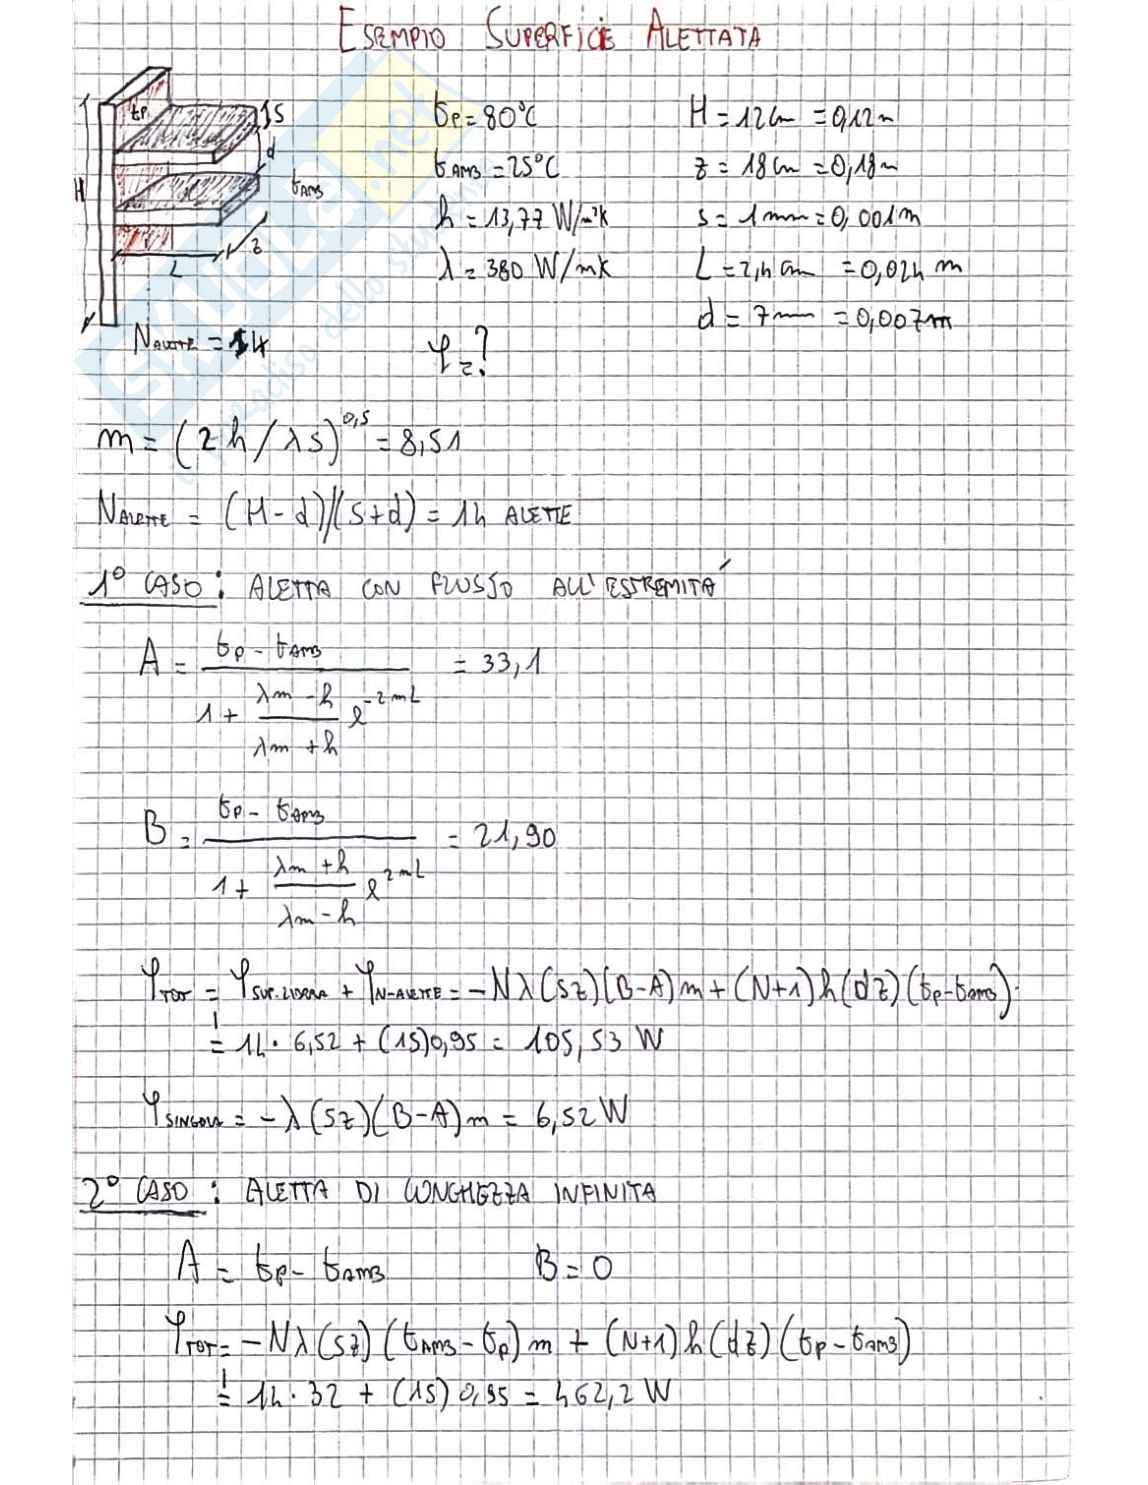 ESEMPIO SUPERFICIE ALETTATA
tp
S
d
H
tAMB
z
L
NALETTE = 14
tp = 80°C
tAMB = 25°C
h = 13,77 W/m²K
λ = 380 W/mK
φ = ?
H = 12 cm = 0,12 m
z = 18 cm = 0,18 m
s = 1 mm = 0,001 m
L = 2,4 cm = 0,024 m
d = 7 mm = 0,007 m
m = (2h/λs)^0,5 = 8,51
NALETTE = (H-d)/(s+d) = 14 ALETTE
1° CASO: ALETTA CON FLUSSO ALL'ESTREMITÀ
A = (tp - tAMB) / (1 + (λm - h)/(λm + h) e^-2mL) = 33,1
B = (tp - tAMB) / (1 + (λm + h)/(λm - h) e^2mL) = 21,90
φTOT = φSUP.LIBERA + φN-ALETTE = -Nλ(sz)(B-A)m + (N+1)h(dz)(tp-tAMB)
= 14·6,52 + (15)0,95 = 105,53 W
φSINGOLA = -λ(sz)(B-A)m = 6,52 W
2° CASO: ALETTA DI LUNGHEZZA INFINITA
A = tp - tAMB B = 0
φTOT = -Nλ(sz)(tAMB - tp)m + (N+1)h(dz)(tp - tAMB)
= 14·32 + (15)0,95 = 462,2 W